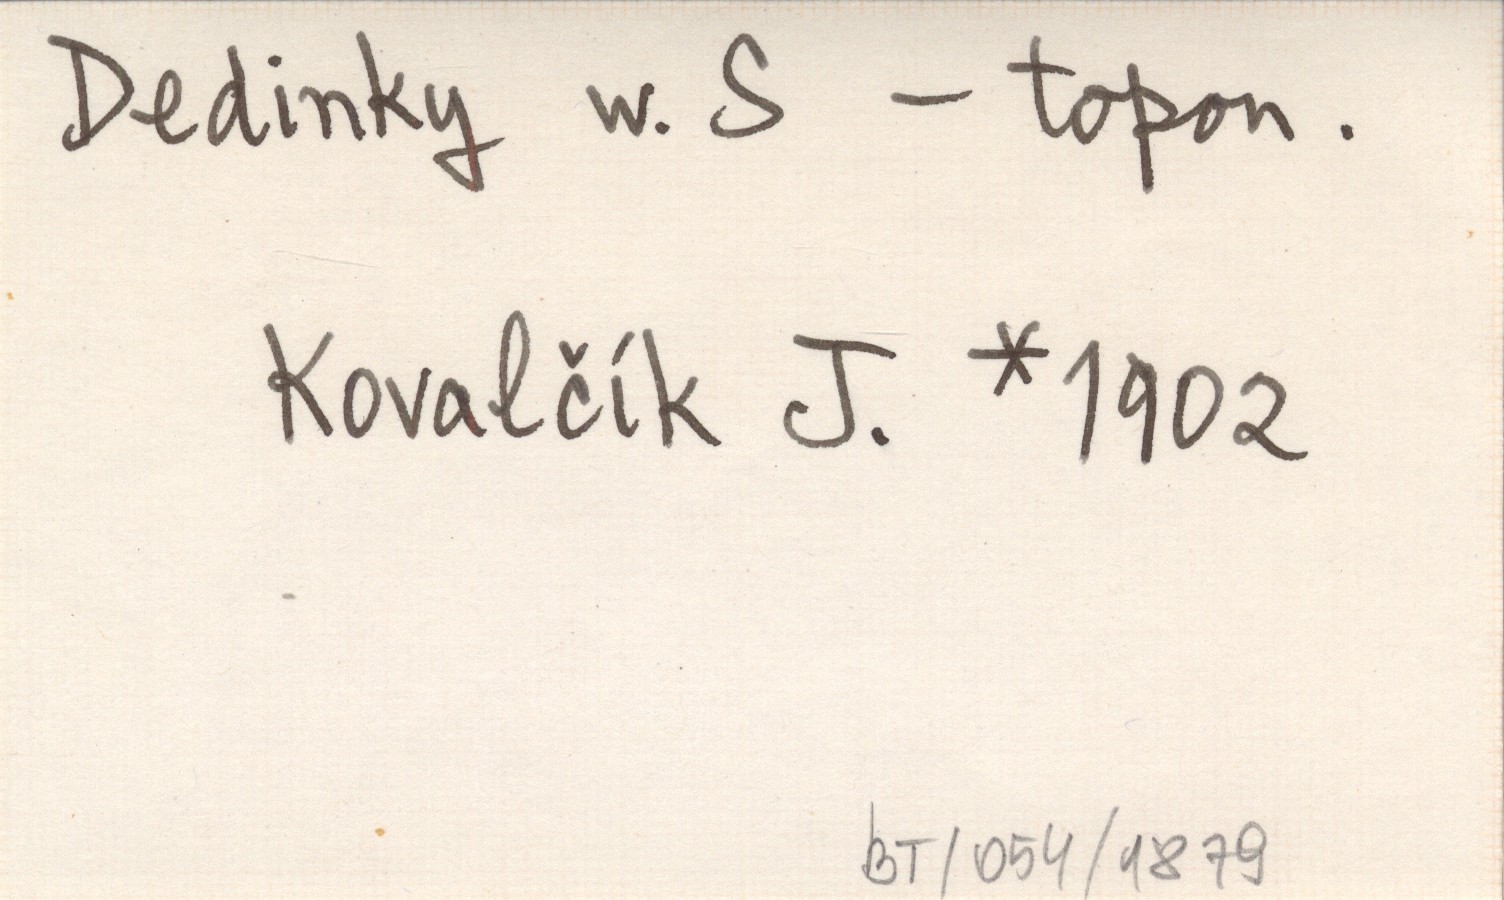 Dedinky w. S - topon.
Kovalčík J. *1902
BT/054/1879